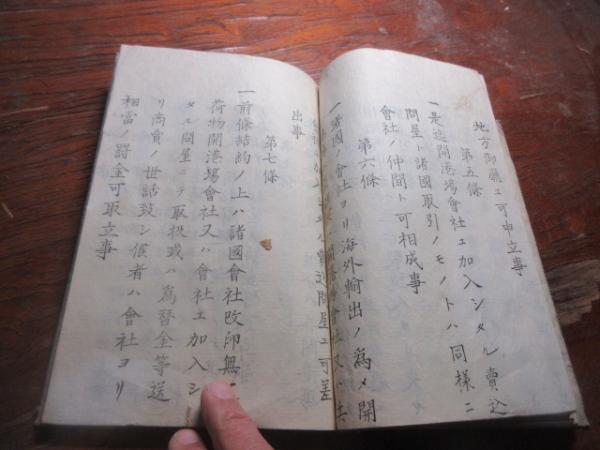 地方御廳エ可申立事
第五條
一是迄開港場會社エ加入シタル賣込
問屋ト諸國取引ノモノトハ同樣ニ
會社ノ仲間ト可相成事
第六條
一諸國ノ會社ヨリ海外輸出ノ為メ開
賣込問屋エ可差
出事
第七條
一前條結約ノ上ハ諸國會社改印無
荷物開港場會社又ハ會社エ加入シ
タル問屋ニテ取扱或ハ為替金等送
リ商賣ノ世話致シ候者ハ會社ヨリ
相當ノ罸金可取立事